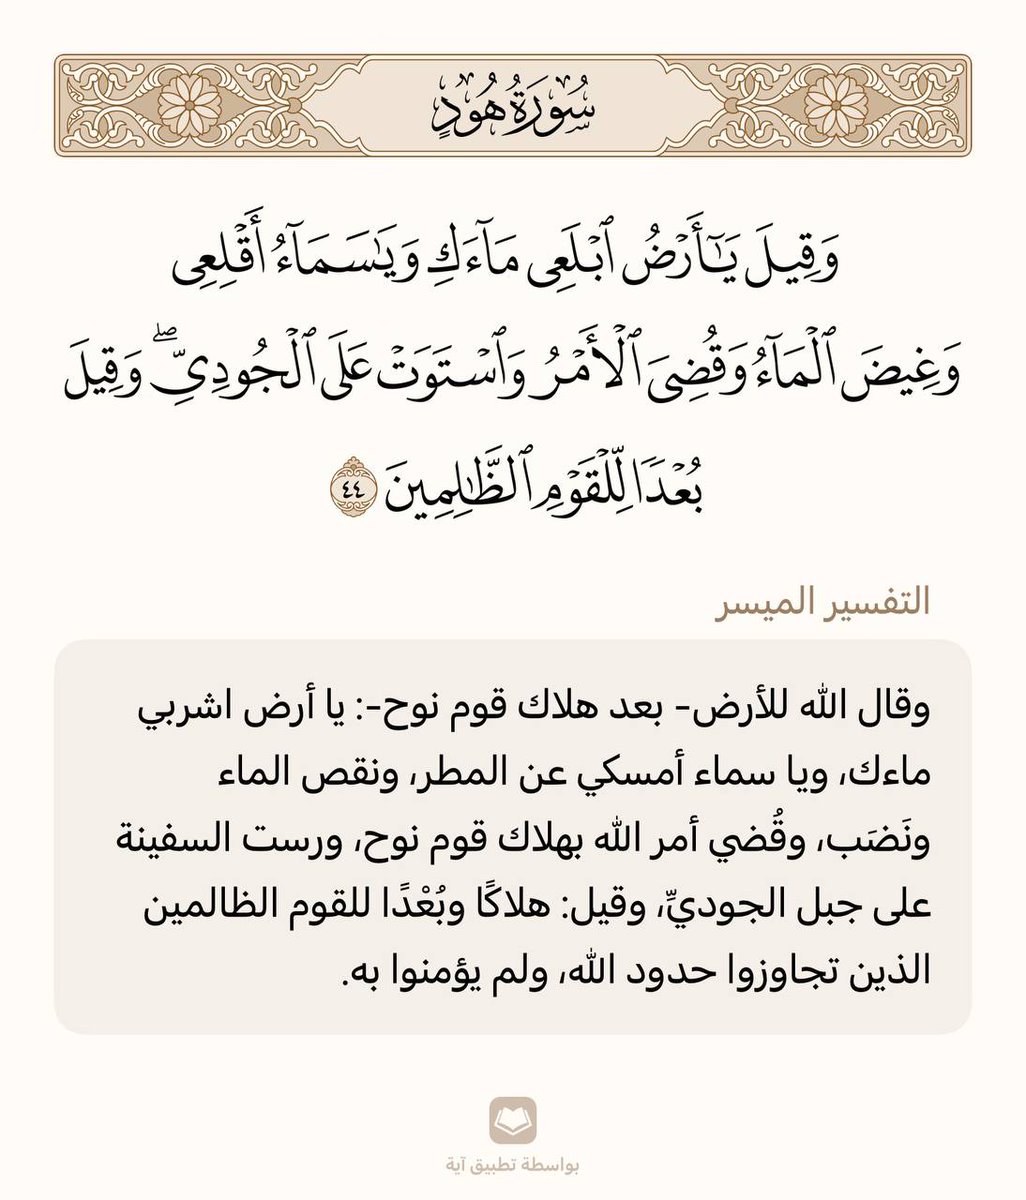 سُورَةُ هُودٍ
وَقِيلَ يَـٰٓأَرۡضُ ٱبۡلَعِي مَآءَكِ وَيَـٰسَمَآءُ أَقۡلِعِي
وَغِيضَ ٱلۡمَآءُ وَقُضِيَ ٱلۡأَمۡرُ وَٱسۡتَوَتۡ عَلَى ٱلۡجُودِيِّۖ وَقِيلَ
بُعۡدٗا لِّلۡقَوۡمِ ٱلظَّـٰلِمِينَ ٤٤
التفسير الميسر
وقال الله للأرض- بعد هلاك قوم نوح-: يا أرض اشربي
ماءك، ويا سماء أمسكي عن المطر، ونقص الماء
ونَضَب، وقُضي أمر الله بهلاك قوم نوح، ورست السفينة
على جبل الجوديِّ، وقيل: هلاكًا وبُعْدًا للقوم الظالمين
الذين تجاوزوا حدود الله، ولم يؤمنوا به.
بواسطة تطبيق آية